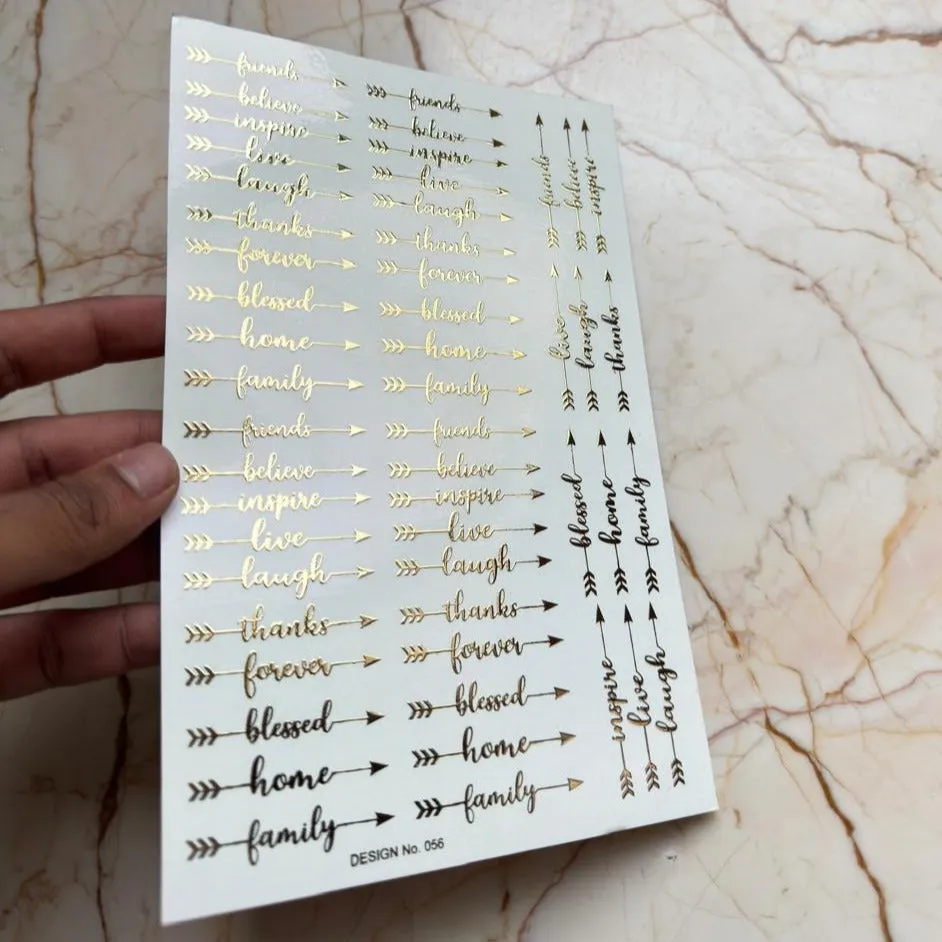 friends friends
believe believe
inspire inspire
live live
laugh laugh
thanks thanks
forever forever
blessed blessed
home home
family family
friends friends
believe believe
inspire inspire
live live
laugh laugh
thanks thanks
forever forever
blessed blessed
home home
family family
friends
believe
inspire
live
laugh
thanks
blessed
home
family
inspire
live
laugh
DESIGN No. 056